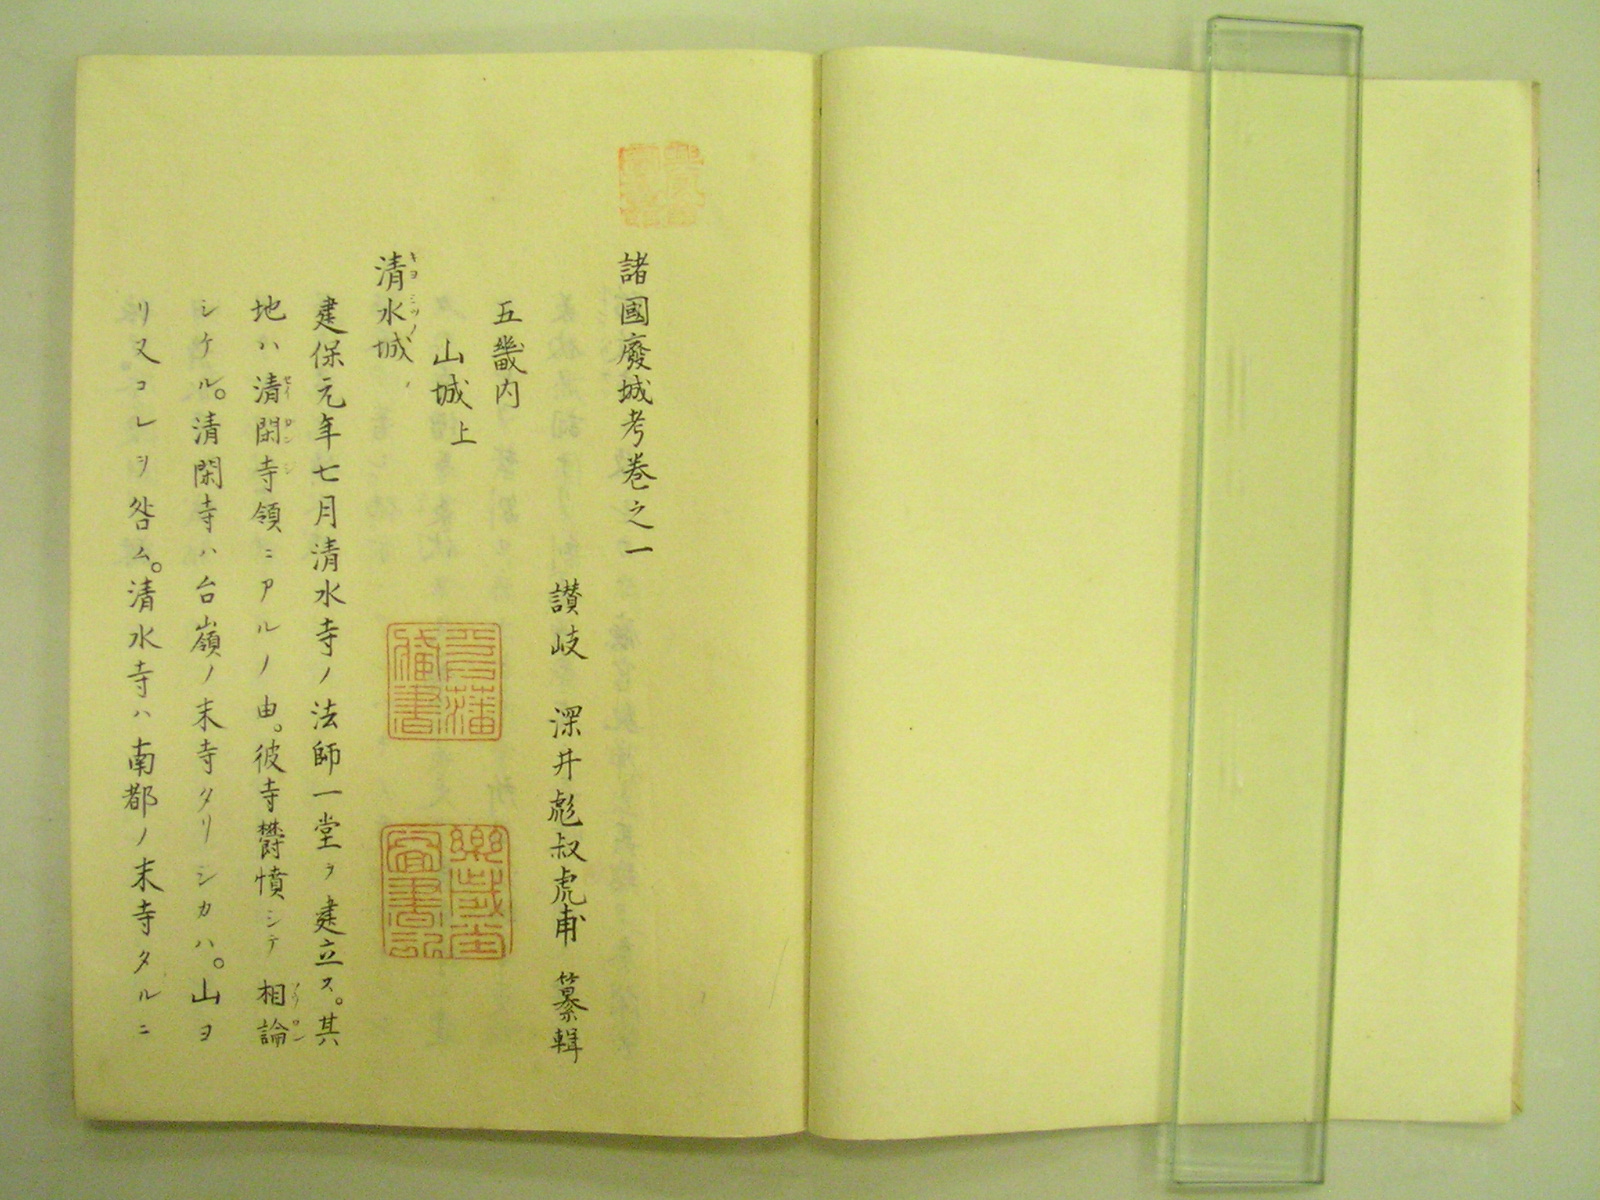 諸國廢城考卷之一
讃岐 深井彪叔虎甫 纂輯
五畿内
山城上
清水城
キヨミツノ
建保元年七月清水寺ノ法師一堂ヲ建立ス。其
地ハ清閑寺領ニアルノ由。彼寺欝憤シテ相論
セイロンシ
シケル。清閑寺ハ台嶺ノ末寺タリシカハ。山ヨ
リ又コレヲ咎ム。清水寺ハ南都ノ末寺タルニ
樂歳堂圖書記